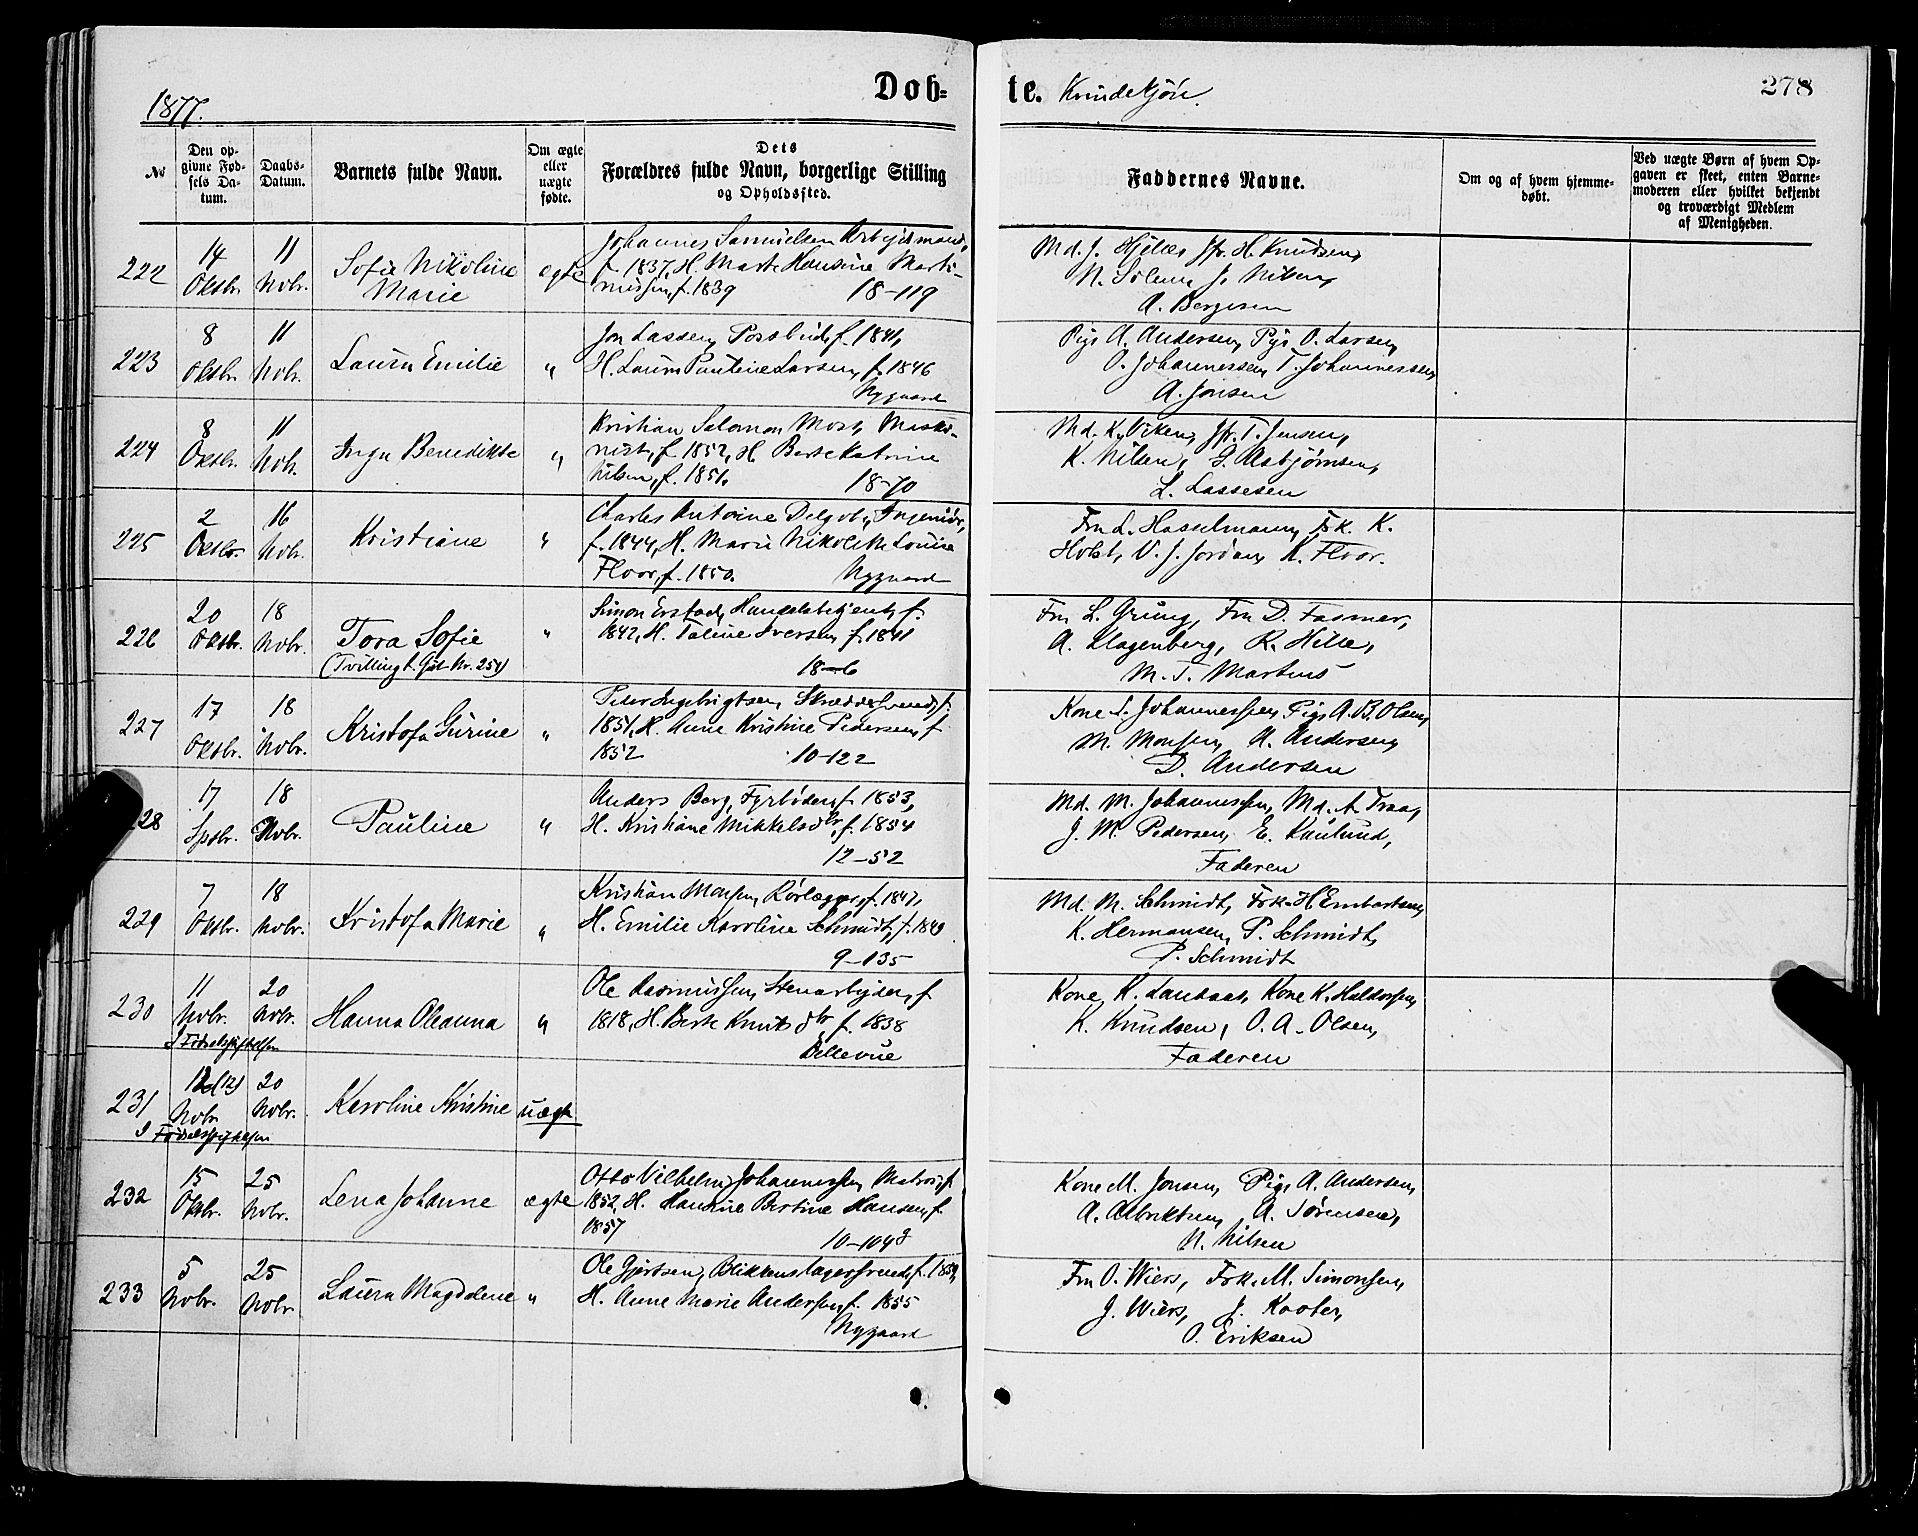 1877.
Døb-
te. Kvindekjön.
278
No
Den op-
givne Fød-
sels Da-
tum.
Daabs-
Datum.
Barnets fulde Navn.
Om ægte
eller
uægte
fødte.
Dets
Forældres fulde Navn, borgerlige Stilling
og Opholdssted.
Faddernes Navne.
Om og af hvem hjemme-
døbt.
Ved uægte Børn af hvem Op-
gaven er skeet, enten Barne-
moderen eller hvilket bekjendt
og troværdigt Medlem
af Menigheden.
222
14
Oktbr.
11
Nobr.
Sofie Nikoline
Marie
ægte
Johannes Samuelsen Arbejdsmand,
f. 1837, H. Marte Hansine Marti-
nussen, f. 1839 18-119
Md. J. Hjelles Jfr. H. Knudsen,
N. Solem, J. Nilsen,
A. Bergesen
223
8
Oktbr.
11
Nobr.
Laura Emilie
"
Jon Lassen, Postbud, f. 1841,
H. Laura Pauline Larsen, f. 1846
Nygaard
Pige A. Andersen, Pige O. Larsen,
O. Johannessen, T. Johannessen,
A. Jonsen
224
8
Oktbr.
11
Nobr.
Inga Benedikte
"
Kristian Salomon Most, Maski-
nist, f. 1852, H. Berte Katrine
Nilsen, f. 1851. 18-70
Md. K. Viken, Jfr. T. Jensen,
K. Nilsen, G. Asbjörnsen,
L. Lassesen
225
2
Oktbr.
16
Nobr.
Kristiane
"
Charles Antoine Delgobe, Ingeniör,
f. 1844, H. Marie Nikolette Louise
Floor, f. 1850. Nygaard
Fru L. Hasselmann, Frk. K.
Holst, V. J. Jordan, K. Floor.
226
20
Oktbr.
18
Nobr.
Tora Sofie
(Tvilling t. Gut. Nr. 254)
"
Simon Erstad, Handelsbetjent, f.
1842, H. Taline Iversen, f. 1841
18-6
Fru L. Grung, Fru D. Fasmer,
A. Klagenberg, R. Hille,
M. T. Martens
227
17
Oktbr.
18
Nobr.
Kristofa Gurine
"
Peder Ingebrigtsen, Skræddersvend, f.
1851, H. Anne Kristine Pedersen, f.
1852 10-122
Kone S. Johannessen, Pige A. B. Olsen,
M. Monsen, A. Andersen,
D. Andersen
228
17
Sptbr.
18
Nobr.
Pauline
"
Anders Berg, Fyrböder, f. 1853,
H. Kristiane Mikkelsdtr, f. 1854
12-52
Md. M. Johannessen, Md. A. Traa,
J. M. Pedersen, E. Kaulund,
Faderen
229
7
Oktbr.
18
Nobr.
Kristofa Marie
"
Kristian Monsen, Rörlægger, f. 1847,
H. Emilie Karoline Schmidt, f. 1849
9-135
Md. M. Schmidt, Frk. H. Embertsen,
K. Hermansen, P. Schmidt,
P. Schmidt
230
11
Nobr.
20
Nobr.
I Födselsstiftelsen
Hanna Oleanna
"
Ole Rasmussen, Stenarbejder, f.
1818, H. Berte Knutsdtr, f. 1838
Bellevue
Kone K. Landaas, Kone K. Haldorsen,
K. Knudsen, O. A. Olsen,
Faderen
231
12 (12)
Nobr.
20
Nobr.
I Födselsstiftelsen
Karoline Kristine
uægte
232
15
Oktbr.
25
Nobr.
Lena Johanne
ægte
Otto Vilhelm Johannessen, Matros, f.
1852, H. Hansine Bertine Hansen, f.
1857 10-104
Kone M. Jonsen, Pige A. Andersen,
A. Albriktsen, A. Sörensen,
N. Nilsen
233
5
Nobr.
25
Nobr.
Laura Magdalene
"
Ole Gjertsen, Blikkenslagersvend, f. 1850,
H. Anne Marie Andersen, f. 1855
Nygaard
Fru O. Wiers, Frk. M. Simonsen,
J. Wiers, J. Kooter,
O. Eriksen